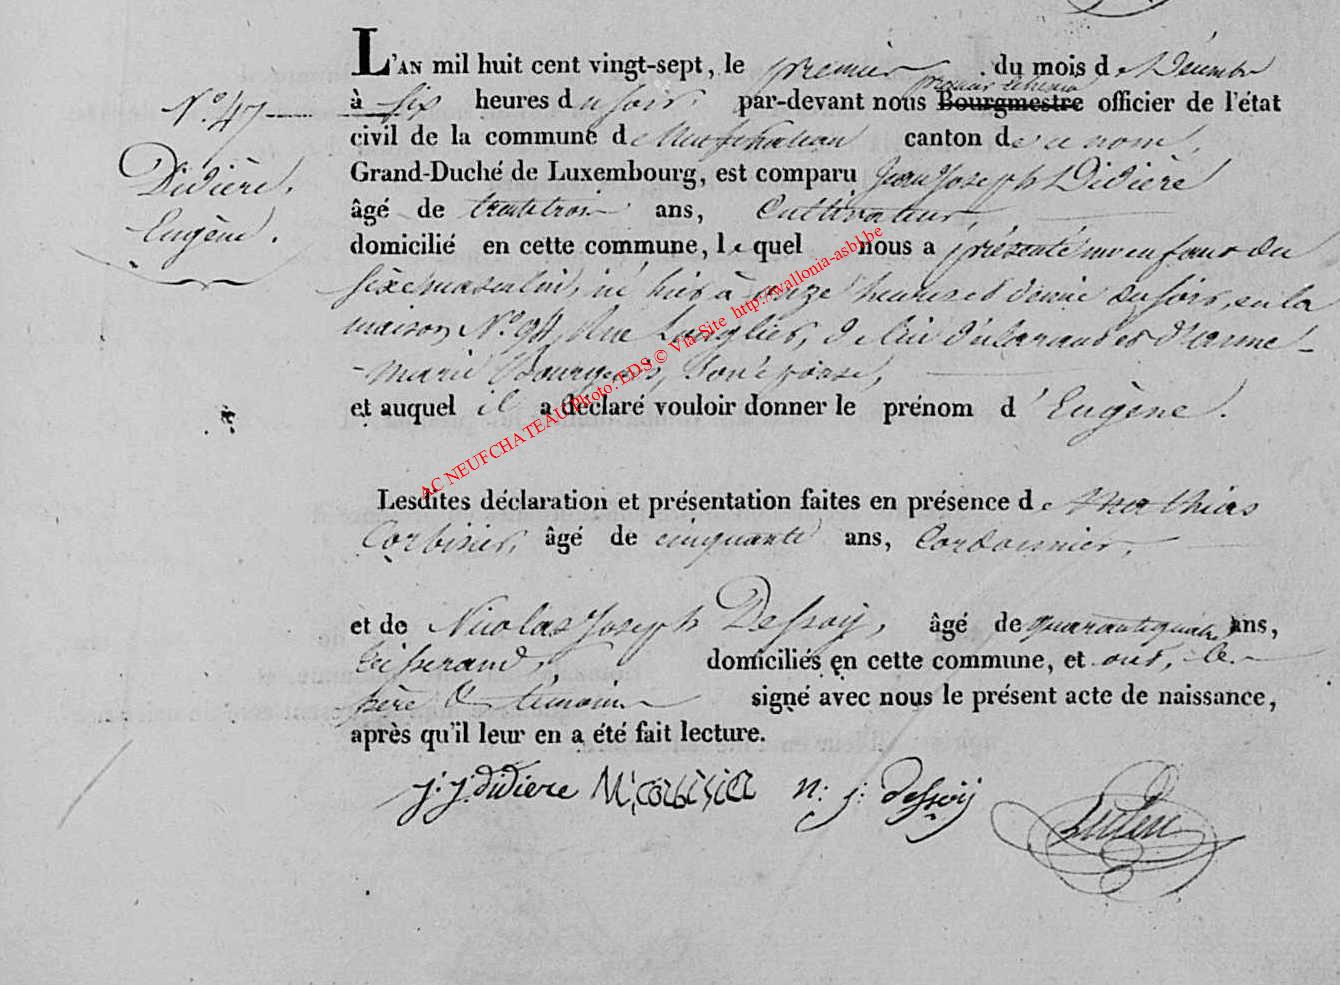 L'AN mil huit cent vingt-sept, le premier du mois de Décembre
premier échevin
N.º 47 à six heures du soir, par-devant nous Bourgmestre officier de l'état
civil de la commune de Neufchateau canton de ce nom,
Didière, Grand-Duché de Luxembourg, est comparu Jean Joseph Didière
âgé de trentetrois ans, Cultivateur,
Eugène. domicilié en cette commune, lequel nous a présenté un enfant du
séxe masculin, né hier à onze heures et demie du soir, en la
maison N.º 94, Rue Longlier, de lui déclarant et d'anne-
-Marie Bourgeois, Son épouse,
et auquel il a déclaré vouloir donner le prénom d'Eugène.
Lesdites déclaration et présentation faites en présence de Mathias
Corbisier, âgé de cinquante ans, Cordonnier,
et de Nicolas Joseph Dessoÿ, âgé de quarantequatre ans,
tisserand, domiciliés en cette commune, et ont, le
père & témoins signé avec nous le présent acte de naissance,
après qu'il leur en a été fait lecture.
j: j: didiere M: corbisier n: j: dessoÿ
AC NEUFCHATEAU Photo: EDS © Via Site http://wallonia-asbl.be